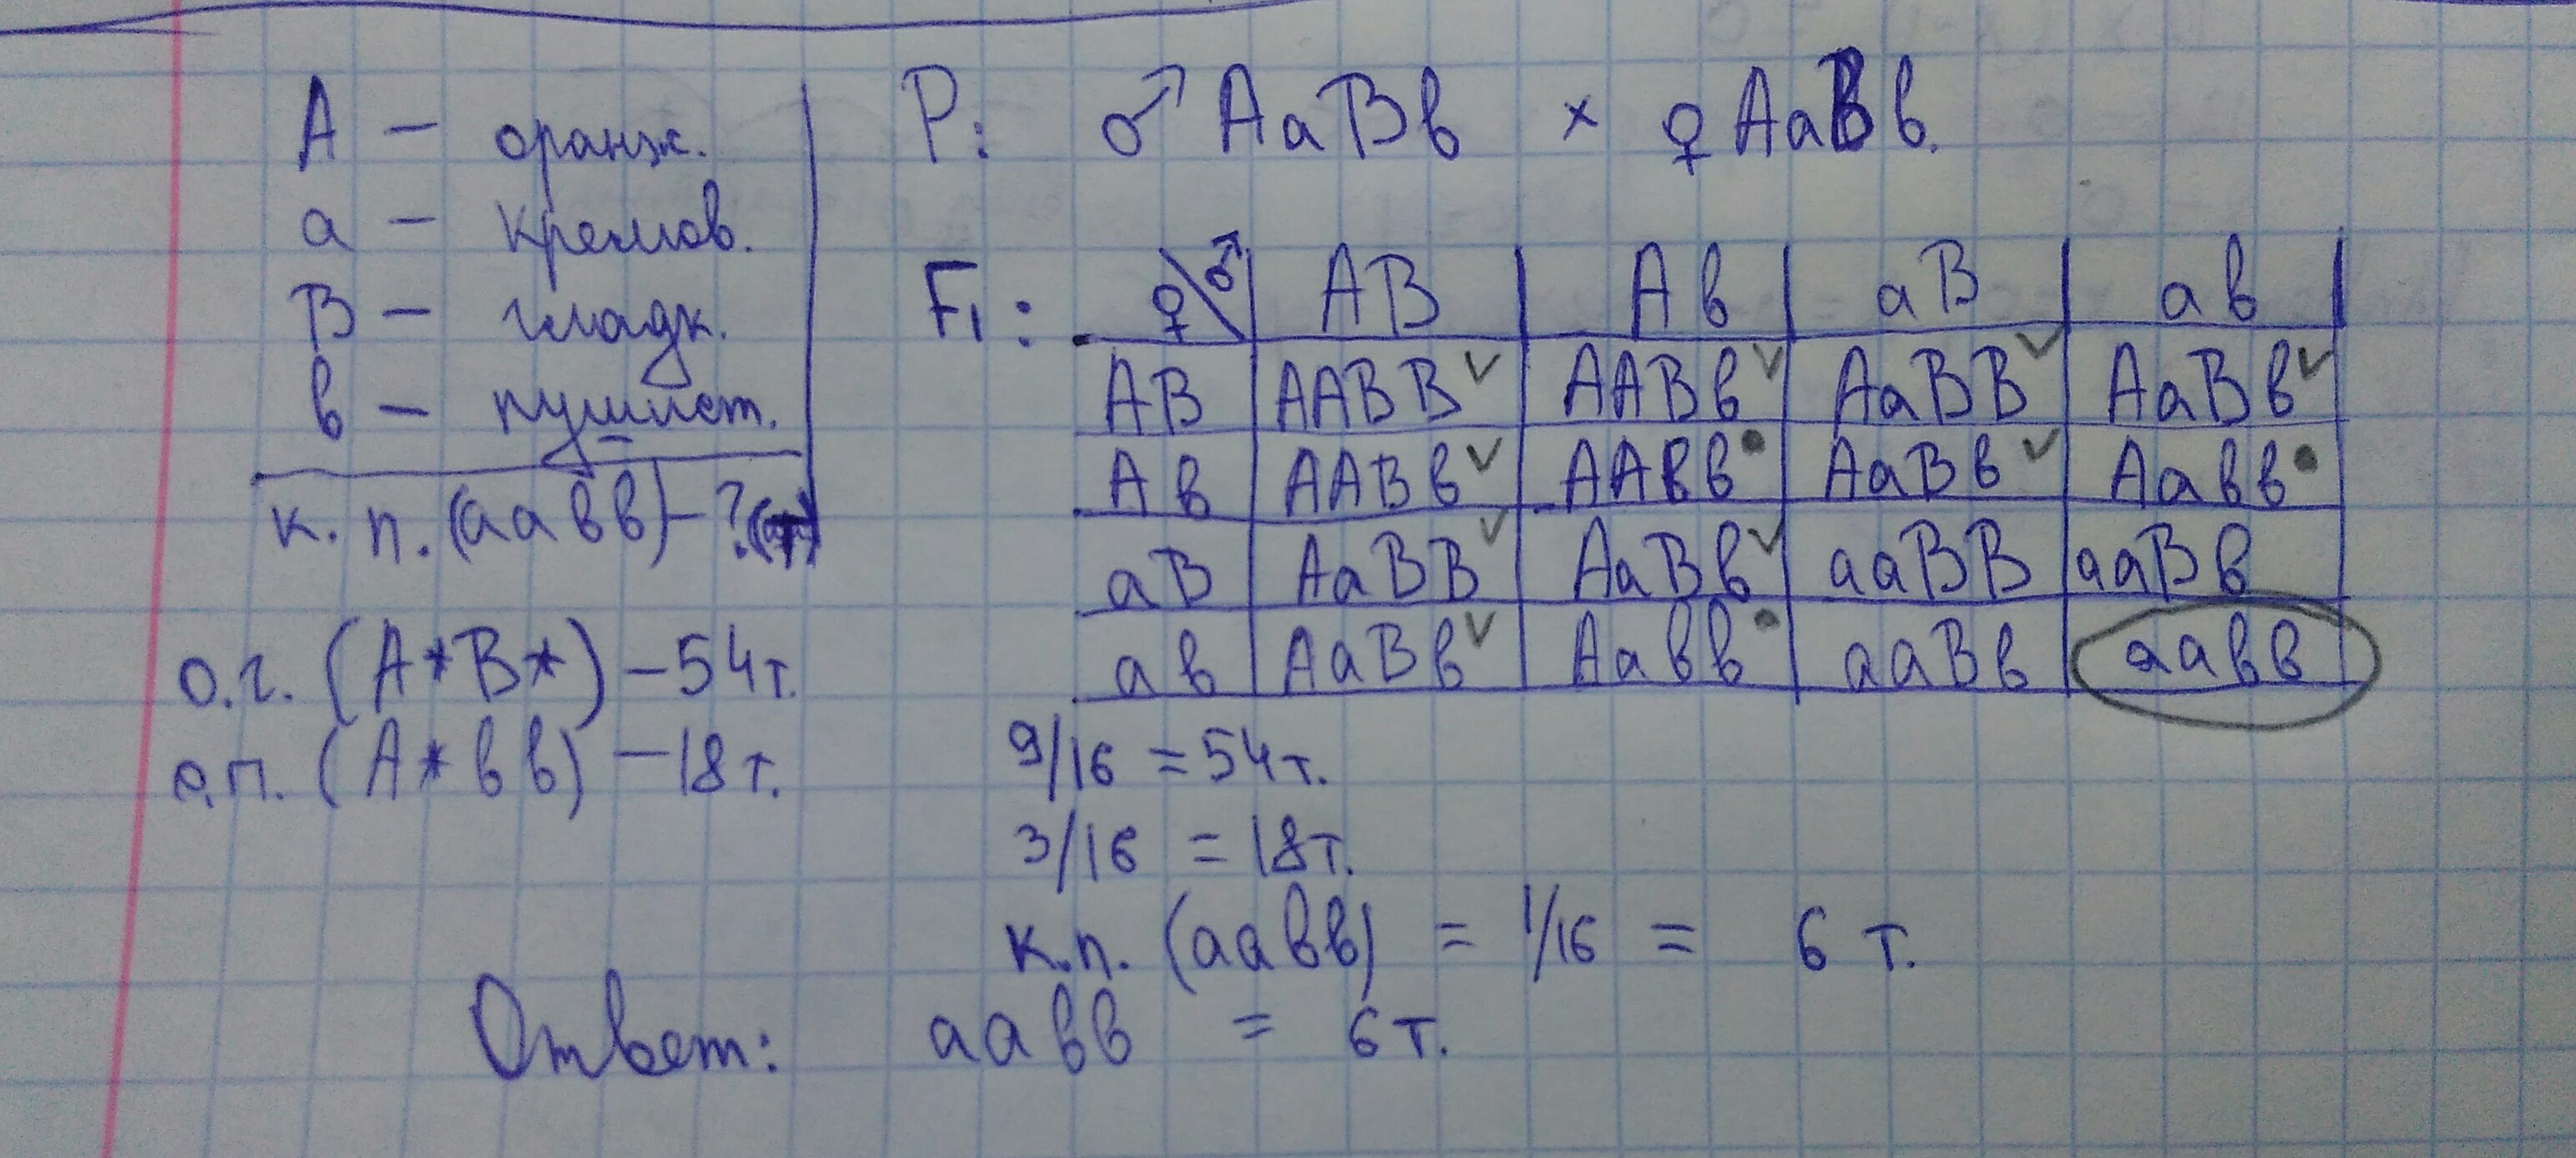 А – оранж.
а – кремов.
В – гладк.
в – пушист.
к. п. (аавв) – ? (т)
о.г. (А*В*) – 54 т.
о.п. (А*вв) – 18 т.
P: ♂ АаВв × ♀ АаВв.
F₁: ♀\♂ АВ Ав аВ ав
АВ ААВВ ✓ ААВв ✓ АаВВ ✓ АаВв ✓
Ав ААВв ✓ ААвв • АаВв ✓ Аавв •
аВ АаВВ ✓ АаВв ✓ ааВВ ааВв
ав АаВв ✓ Аавв • ааВв аавв
9/16 = 54 т.
3/16 = 18 т.
к.п. (аавв) = 1/16 = 6 т.
Ответ: аавв = 6 т.